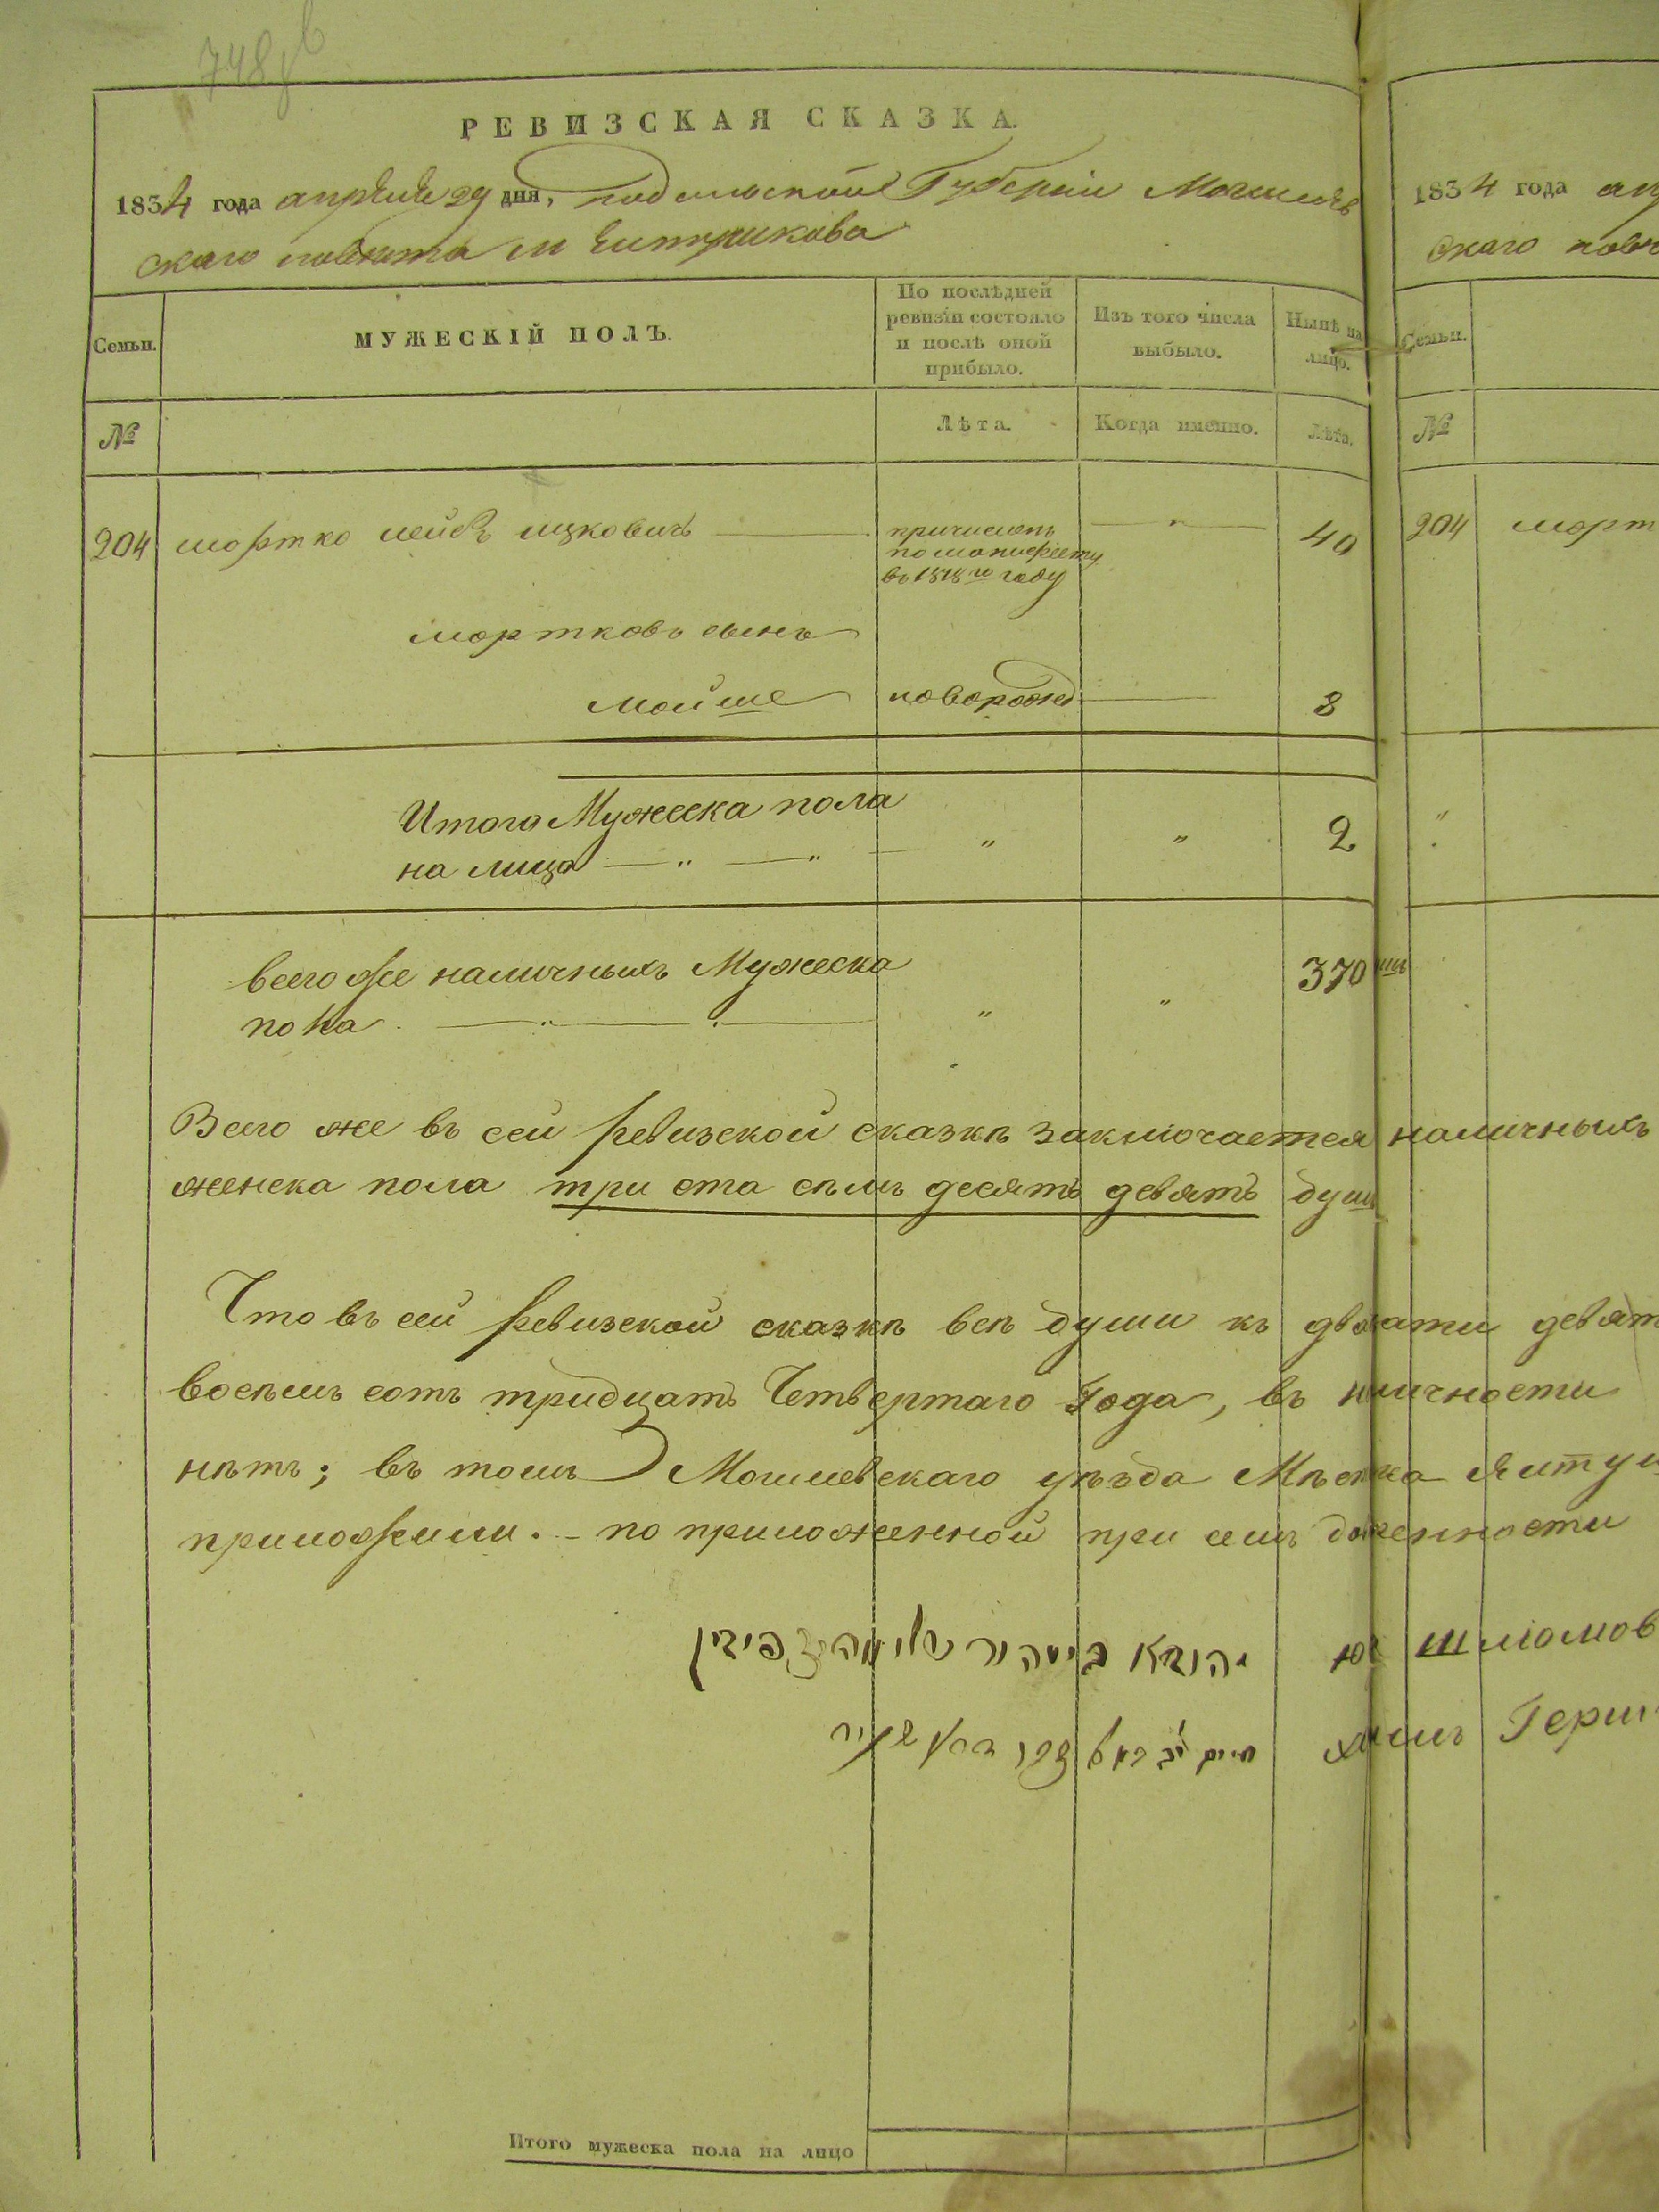 748
РЕВИЗСКАЯ СКАЗКА.
1834 года апрѣля 29 дня, подольской Губерніи Могилев
скаго повѣта м
Семьи.
МУЖЕСКІЙ ПОЛЪ.
По послѣдней
ревизіи состояло
и послѣ оной
прибыло.
Изъ того числа
выбыло.
Нынѣ на
лицо.
№
Лѣта.
Когда именно.
Лѣта.
204 мортко лейбъ ицковичъ
причисленъ
по манифесту
въ 1818го году
40
мортковъ сынъ
мойше новорожд 8
Итого Мужеска пола
на лицо 2
всего же наличныхъ Мужеска
пола 370
Всего же въ сей ревизской сказкѣ заключается наличныхъ
женска пола три ста семь десятъ девять душъ
Что въ сей ревизской сказкѣ всѣ души къ двацати девят
восемь сотъ тридцать Четвертаго Года, въ личности
нѣтъ; въ томъ Могилевскаго уѣзда Мѣстечка
приложили. по приложенной при семъ довѣренности
יהודא שלמה
חיים
шліомов
Герш
1834 года ап
скаго повѣ
Семьи.
№
204 морт
Итого мужеска пола на лицо